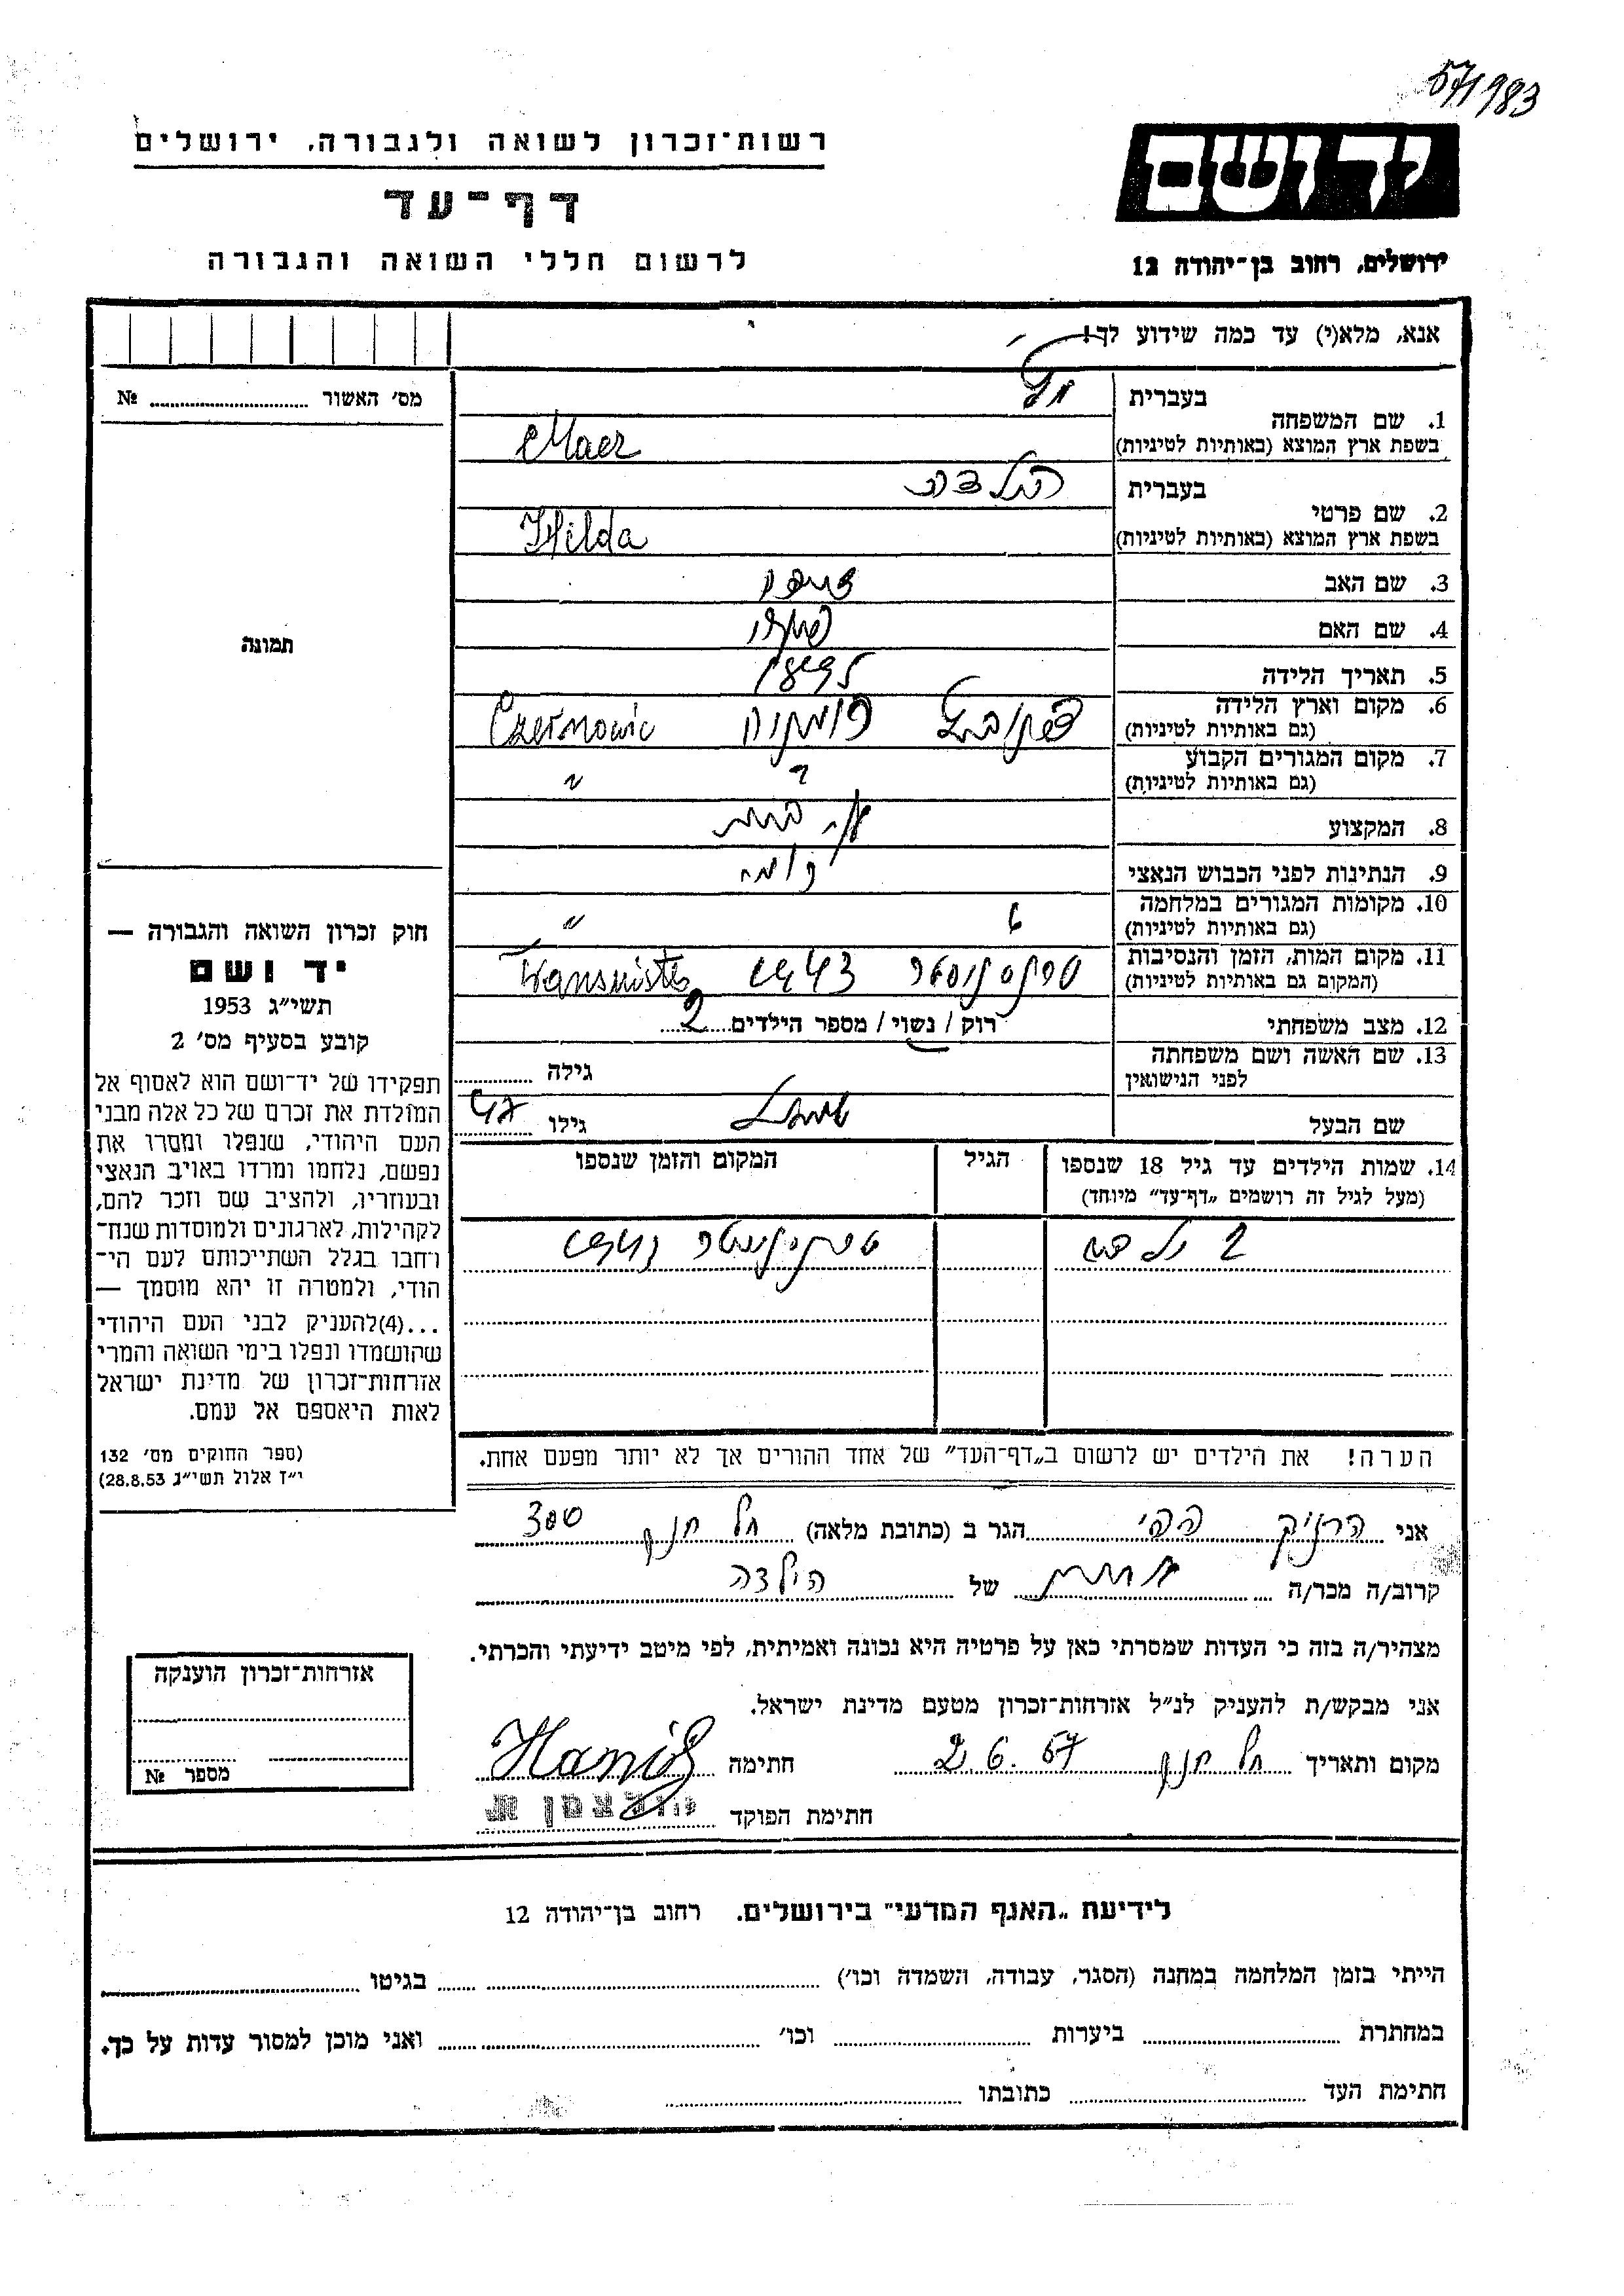 57/1983
ידושם
ירושלים, רחוב בן־יהודה 12
רשות־זכרון לשואה ולגבורה, ירושלים
דף־עד
לרשום חללי השואה והגבורה
אנא, מלא(י) עד כמה שידוע לך!
מס׳ האשור № 
תמונה
חוק זכרון השואה והגבורה —
יד ושם
תשי״ג 1953
קובע בסעיף מס׳ 2
תפקידו של יד־ושם הוא לאסוף אל
המולדת את זכרם של כל אלה מבני
העם היהודי, שנפלו ומסרו את
נפשם, נלחמו ומרדו באויב הנאצי
ובעוזריו, ולהציב שם וזכר להם,
לקהילות, לארגונים ולמוסדות שנח־
רחבו בגלל השתייכותם לעם הי־
הודי, ולמטרה זו יהא מוסמך —
...(4)להעניק לבני העם היהודי
שהושמדו ונפלו בימי השואה והמרי
אזרחות־זכרון של מדינת ישראל
לאות היאספם אל עמם.
(ספר החוקים מס׳ 132
י״ז אלול תשי״ג 28.8.53)
בעברית
1. שם המשפחה
בשפת ארץ המוצא (באותיות לטיניות) Maer
בעברית הילדה
2. שם פרטי
בשפת ארץ המוצא (באותיות לטיניות) Hilda
3. שם האב
4. שם האם
5. תאריך הלידה
6. מקום וארץ הלידה רומניה Czernowic
(גם באותיות לטיניות)
7. מקום המגורים הקבוע
(גם באותיות לטיניות) " "
8. המקצוע
9. הנתינות לפני הכבוש הנאצי רומני
10. מקומות המגורים במלחמה
(גם באותיות לטיניות) "
11. מקום המות, הזמן והנסיבות טרנסניסטר 1943 Transnistr
(המקום גם באותיות לטיניות)
12. מצב משפחתי רוק / נשוי / מספר הילדים 2
13. שם האשה ושם משפחתה
לפני הנישואין גילה
שם הבעל גילו 42
14. שמות הילדים עד גיל 18 שנספו הגיל המקום והזמן שנספו
(מעל לגיל זה רושמים „דף־עד״ מיוחד)
2 ילדים
הערה! את הילדים יש לרשום ב„דף־העד״ של אחד ההורים אך לא יותר מפעם אחת.
אני הרניק הגר ב (כתובת מלאה) תל חנן 300
קרוב/ה מכר/ה אחות של הילדה
מצהיר/ה בזה כי העדות שמסרתי כאן על פרטיה היא נכונה ואמיתית, לפי מיטב ידיעתי והכרתי.
אני מבקש/ת להעניק לנ״ל אזרחות־זכרון מטעם מדינת ישראל.
מקום ותאריך תל חנן 2.6.57 חתימה
חתימת הפוקד
אזרחות־זכרון הוענקה
מספר №
לידיעת „האגף המדעי״ בירושלים. רחוב בן־יהודה 12
הייתי בזמן המלחמה במחנה (הסגר, עבודה, השמדה וכו׳) בגיטו
במחתרת ביערות וכו׳ ואני מוכן למסור עדות על כך.
חתימת העד כתובתו